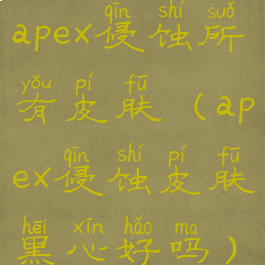 qīn shí suǒ
apex侵蚀所
yǒu pí fū
有皮肤（ap
qīn shí pí fū
ex侵蚀皮肤
hēi xīn hǎo ma
黑心好吗）